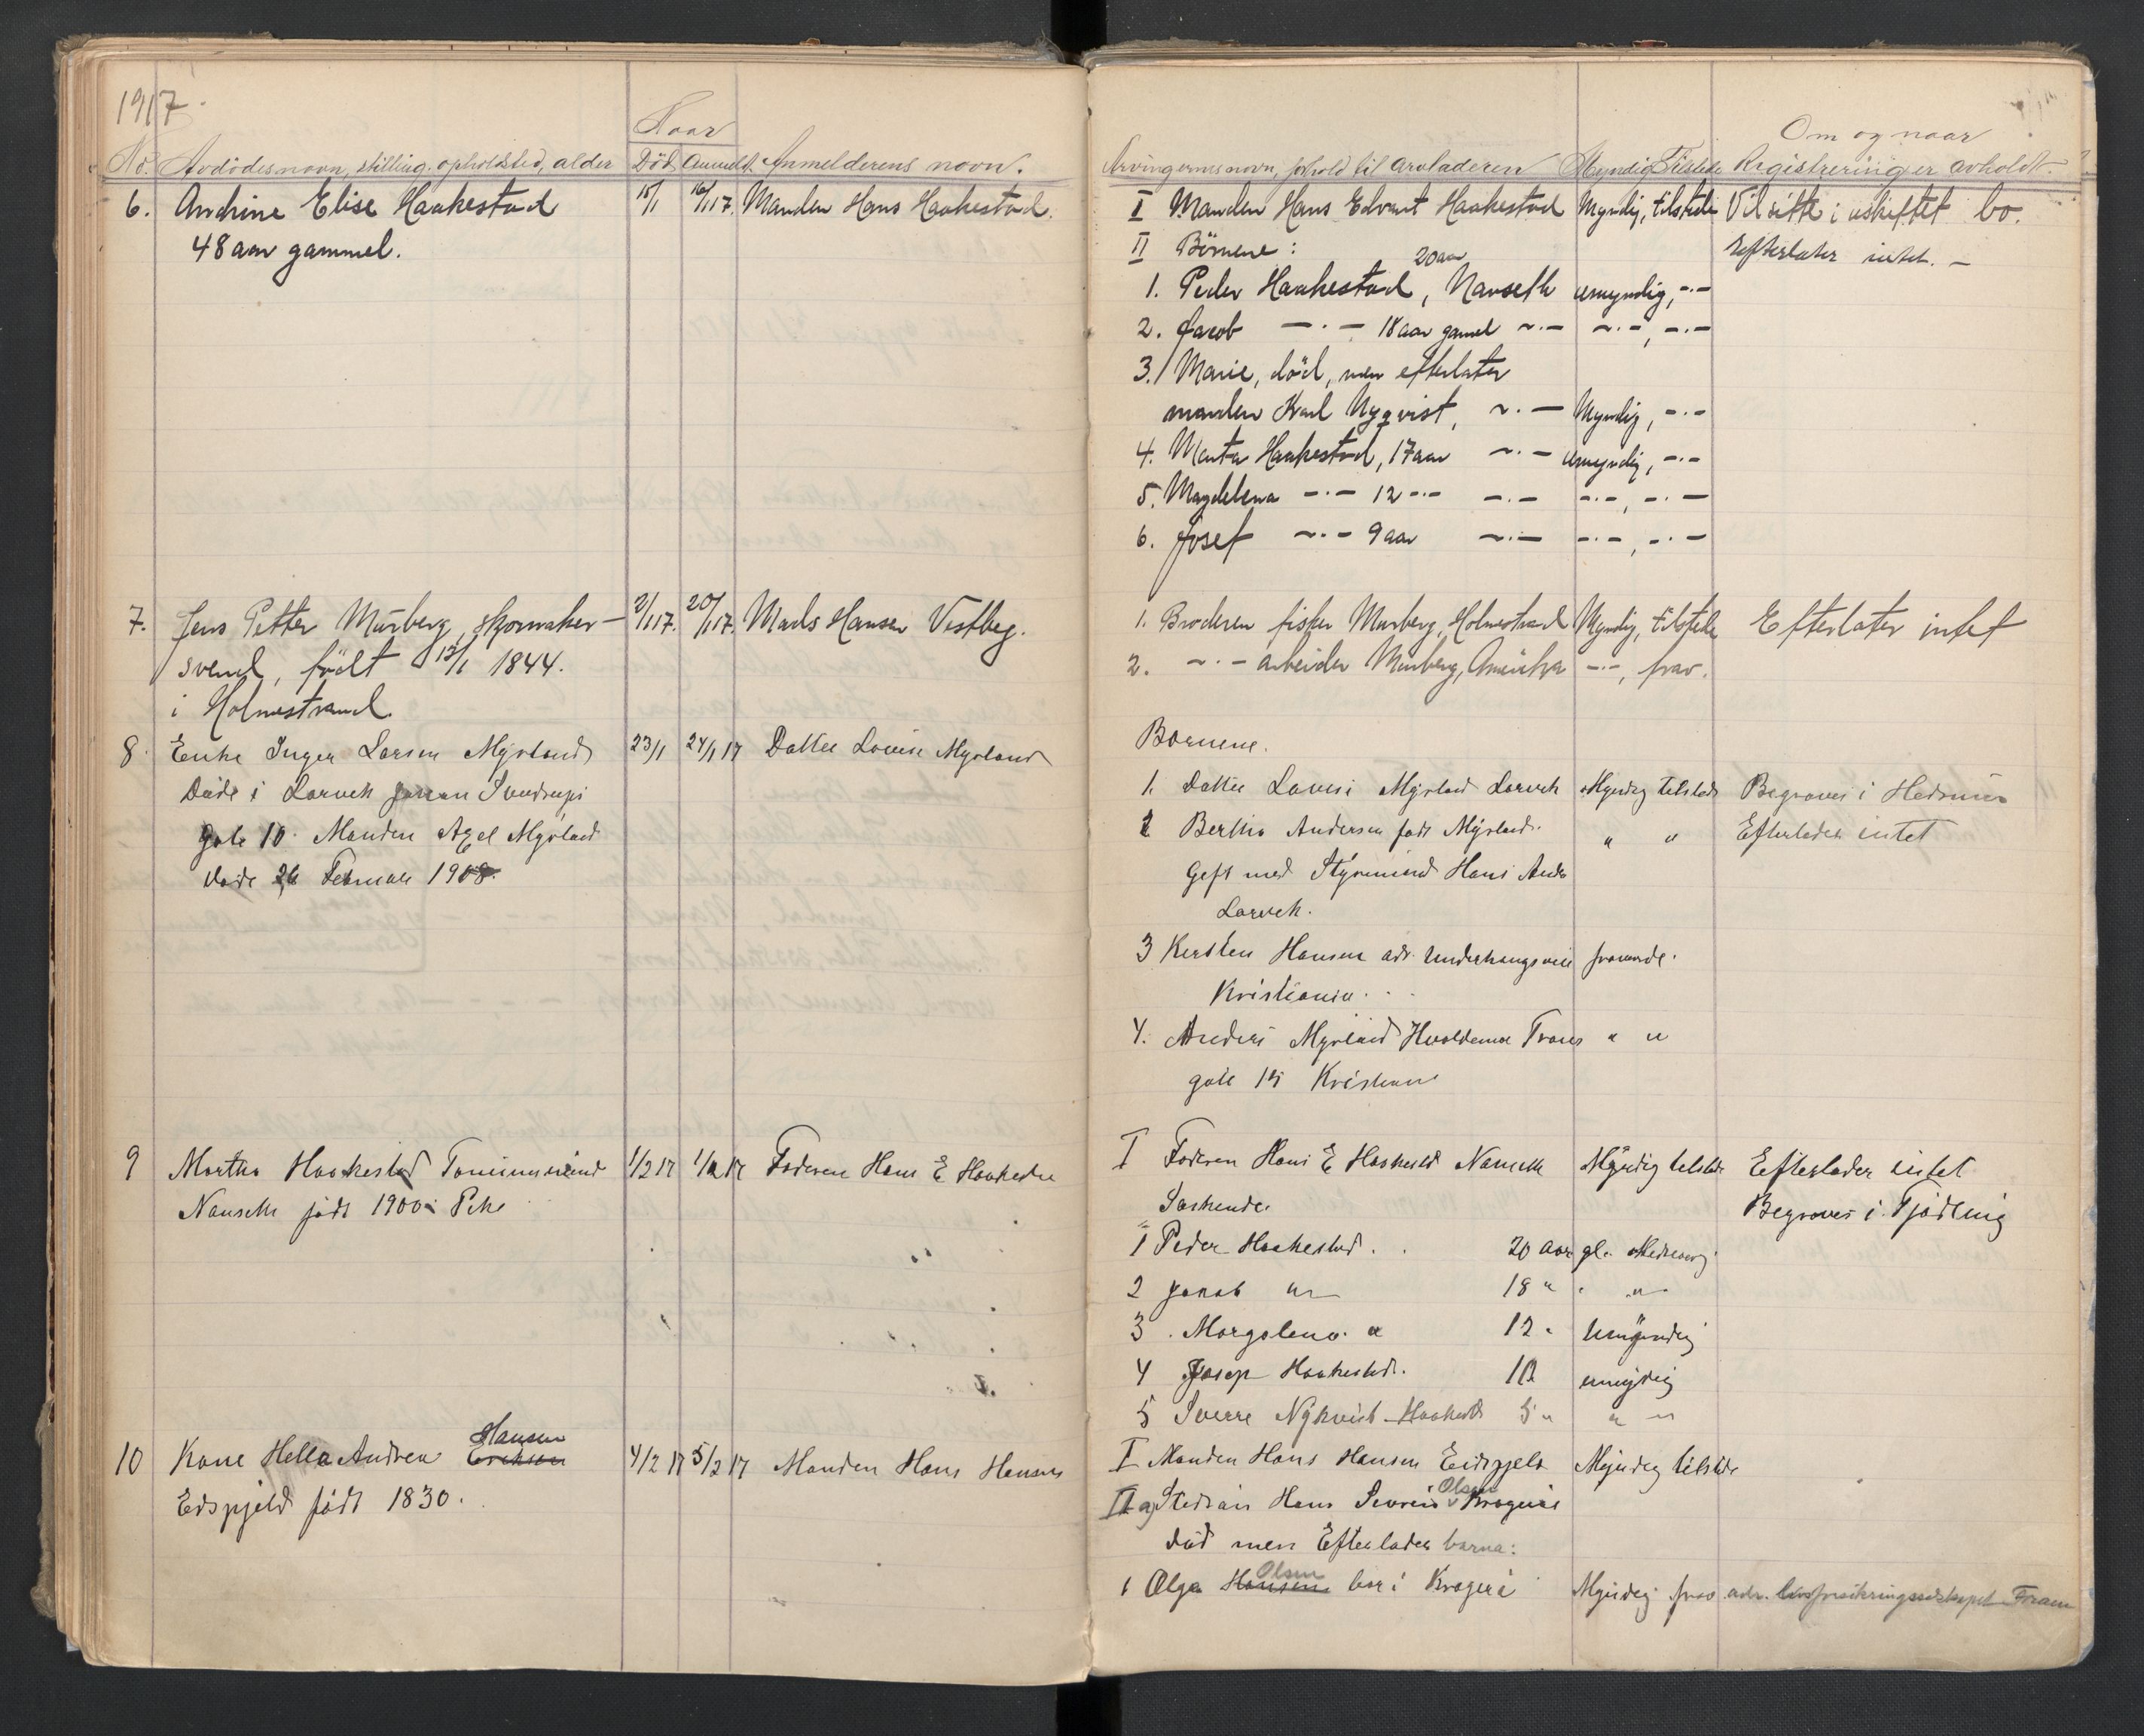 1917.
Naar
No. Avdödes navn, stilling, opholdsted, alder Död Anmeldt Anmelderens navn.
6. Andrine Elise Haakestad 15/1 16/1 17. Manden Hans Haakestad.
48 aar gammel.
7. Jens Petter Murberg, skomaker- 2/1 17. 20/1 17. Mads Hansen Vestbeg.
svend, födt 13/1 1844.
i Holmestrand.
8. Enke Inger Larsen Myrland 23/1 24/1 17 Datter Lovise Myrland
Døde i Larvik Johan Sverdrups
gate 10. Manden Axel Myrland
døde 26 Februar 1908.
9 Martha Haakestad 1/2 17 1/2 17 Faderen Hans E Haakestad
Nanseth født 1900 Pike
Hansen
10 Kone Hella Andrea Eriksen 4/2 17 5/2 17 Manden Hans Hansen
Eidsfjeld født 1830.
Om og naar
Arvingernes navn, forhold til arvladeren Myndig Tilstede Registrering er avholdt.
I Manden Hans Edvart Haakestad Myndig, tilstede Vil sitte i uskiftet bo.
II Börnene: Efterlater intet. —
20 aar
1. Peder Haakestad, Nanseth umyndig, -·-
2. Jacob —·— 18 aar gamel ~·— ~·—, —·—
3. Marie, död, men efterlater
manden Karl Nyqvist, ~·— Myndig, -·-
4. Marta Haakestad, 17 aar ~·— umyndig, -·-
5. Magdelena -·- 12 -·- -·- -·-, -·-
6. Josef ~·- 9 aar ~·— -·-, -·-
1. Broderen fisker Murberg, Holmestrand Myndig, tilstede Efterlater intet
2. ~·- arbeider Murberg, Amerika -·-, frav.
Børnene.
1. Datter Lovise Myrland Larvik Myndig tilstede Begraves i Hedrum
2 Bertha Andersen født Myrland. " " Efterlader intet
Gift med Styrmand Hans Anders
Larvik.
3 Kersten Hansen adr. fraværende.
Kristiania.
4. Anders Myrland Trones " "
gate 15 Kristiania
I Faderen Hans E Haakestad Nanseth Myndig tilstede Efterlader intet
Søskende. Begraves i Tjødling
1 Peder Haakestad. 20 aar gl.
2 Jakob " 18 " "
3. Margdlena " 12 " Umyndig
4 Josep Haakestad. 10 umyndig
5 Sverre Nykvist Haakestad 5 " " "
I Manden Hans Hansen Eidsfjeld Myndig tilstede
Olsen
II a) Stedsøn Hans Severin Kragerø
død men Efterlader barna:
Olsen
1 Olga Hansen bor i Kragerø Myndig frav. adr. livsforsikringsselskapet Fram